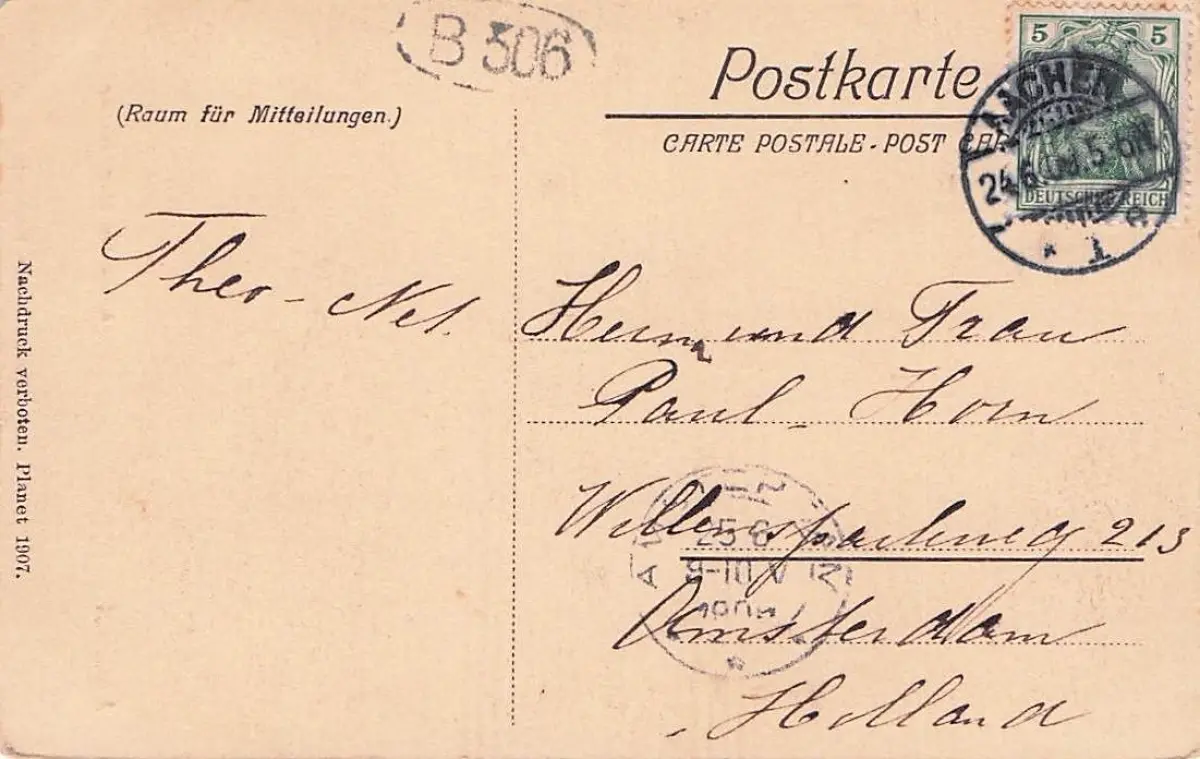 B 306
Postkarte
CARTE POSTALE - POST CAR
5 5
DEUTSCHES REICH
AACHEN
24.6.08.5-6N
* 1 e
(Raum für Mitteilungen.)
Theo - Net.
Herrn und Frau
Paul Horn
Willemsparkweg 213
Amsterdam
Holland
25 6
9-10 V
1908
Nachdruck verboten. Planet 1907.